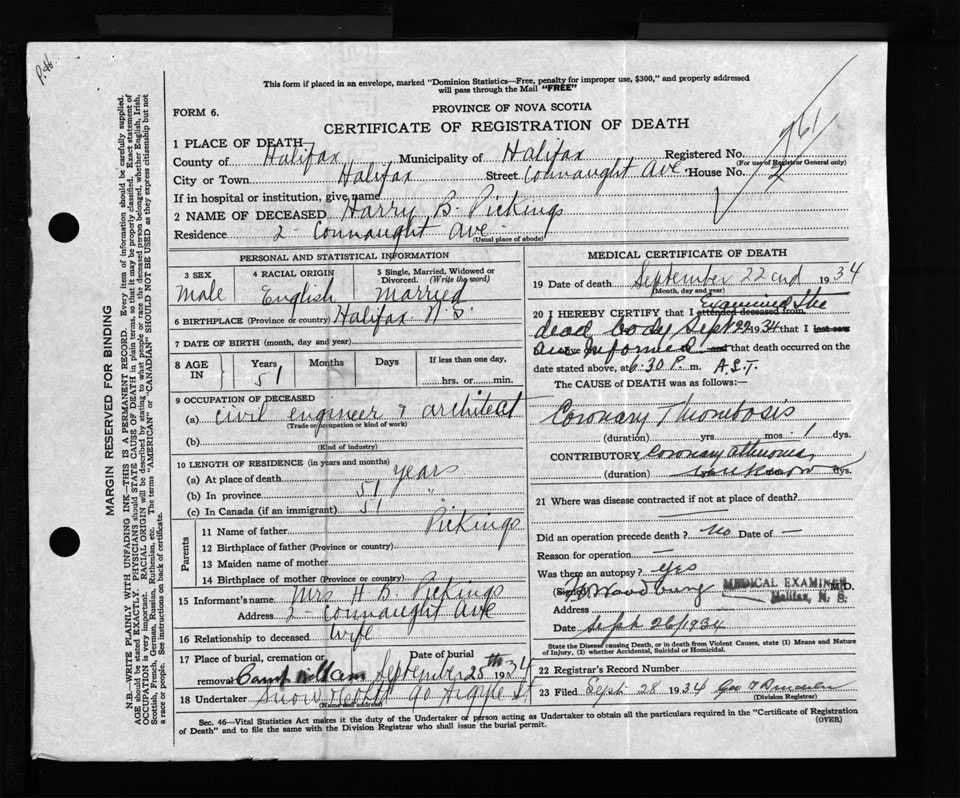 P.H.
This form if placed in an envelope, marked "Dominion Statistics—Free, penalty for improper use, $300," and properly addressed
will pass through the Mail "FREE"
FORM 6.
PROVINCE OF NOVA SCOTIA
CERTIFICATE OF REGISTRATION OF DEATH
761
1 PLACE OF DEATH
County of Halifax Municipality of Halifax Registered No.
(For use of Registrar General only)
City or Town Halifax Street Connaught Ave House No. 2
If in hospital or institution, give name
2 NAME OF DECEASED Harry B. Pickings
Residence 2 Connaught Ave
(Usual place of abode)
PERSONAL AND STATISTICAL INFORMATION
3 SEX 4 RACIAL ORIGIN 5 Single, Married, Widowed or
Divorced. (Write the word)
Male English Married
6 BIRTHPLACE (Province or country) Halifax N.S.
7 DATE OF BIRTH (month, day and year)
8 AGE IN Years Months Days If less than one day,
51 hrs. or min.
9 OCCUPATION OF DECEASED
(a) Civil engineer & architect
(Trade or occupation or kind of work)
(b)
(Kind of industry)
10 LENGTH OF RESIDENCE (in years and months)
(a) At place of death years
(b) In province 51 "
(c) In Canada (if an immigrant) 51
Parents
11 Name of father Pickings
12 Birthplace of father (Province or country)
13 Maiden name of mother
14 Birthplace of mother (Province or country)
15 Informant's name Mrs H. B. Pickings
Address 2 Connaught Ave
16 Relationship to deceased Wife
17 Place of burial, cremation or Date of burial
removal Camp Hill September 25th 1934
18 Undertaker Snow 90 Argyle St
(Name and address)
MEDICAL CERTIFICATE OF DEATH
19 Date of death September 22nd 1934
(Month, day and year)
20 I HEREBY CERTIFY that I attended deceased from Examined the
dead body Sept 22 1934 that I last saw
informed and that death occurred on the
date stated above, at 6.30 P. m. A.S.T.
The CAUSE OF DEATH was as follows:—
Coronary Thrombosis
(duration) yrs. mos. 1 dys.
CONTRIBUTORY Coronary atheroma
(duration) yrs unknown dys.
21 Where was disease contracted if not at place of death?
Did an operation precede death? No Date of —
Reason for operation —
Was there an autopsy? Yes
(Signed) Woodbury M.D.
MEDICAL EXAMINER
Halifax, N. S.
Address
Date Sept 26/1934
State the Disease causing Death, or in death from Violent Causes, state (1) Means and Nature
of Injury, (2) whether Accidental, Suicidal or Homicidal.
22 Registrar's Record Number
23 Filed Sept 28 1934
(Division Registrar)
Sec. 46—Vital Statistics Act makes it the duty of the Undertaker or person acting as Undertaker to obtain all the particulars required in the "Certificate of Registration
of Death" and to file the same with the Division Registrar who shall issue the burial permit. (OVER)
MARGIN RESERVED FOR BINDING
N.B.—WRITE PLAINLY WITH UNFADING INK—THIS IS A PERMANENT RECORD. Every item of information should be carefully supplied.
AGE should be stated EXACTLY. PHYSICIANS should STATE CAUSE OF DEATH in plain terms, so that it may be properly classified. Exact statement of
OCCUPATION is very important. RACIAL ORIGIN will be described by stating to what people or race the deceased person belonged, whether English, Irish,
Scottish, French, German, Russian, Ruthenian, etc. The terms "AMERICAN" or "CANADIAN" SHOULD NOT BE USED as they express citizenship but not
a race or people. See instructions on back of certificate.